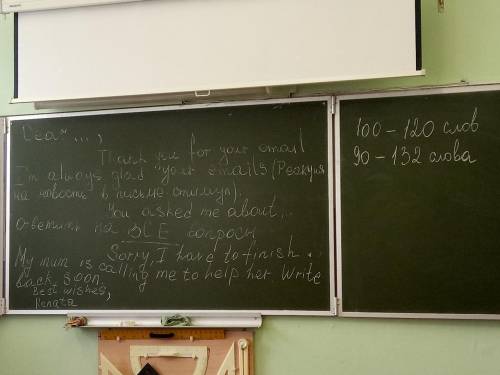 Dear ...,
Thank you for your email
I'm always glad your emails (Реакция
на новость в письме-стимуле).
You asked me about...
Ответить на ВСЕ вопросы
Sorry, I have to finish..
My mum is calling me to help her Write
back soon.
Best wishes,
Renata
100 – 120 слов
90 – 132 слова